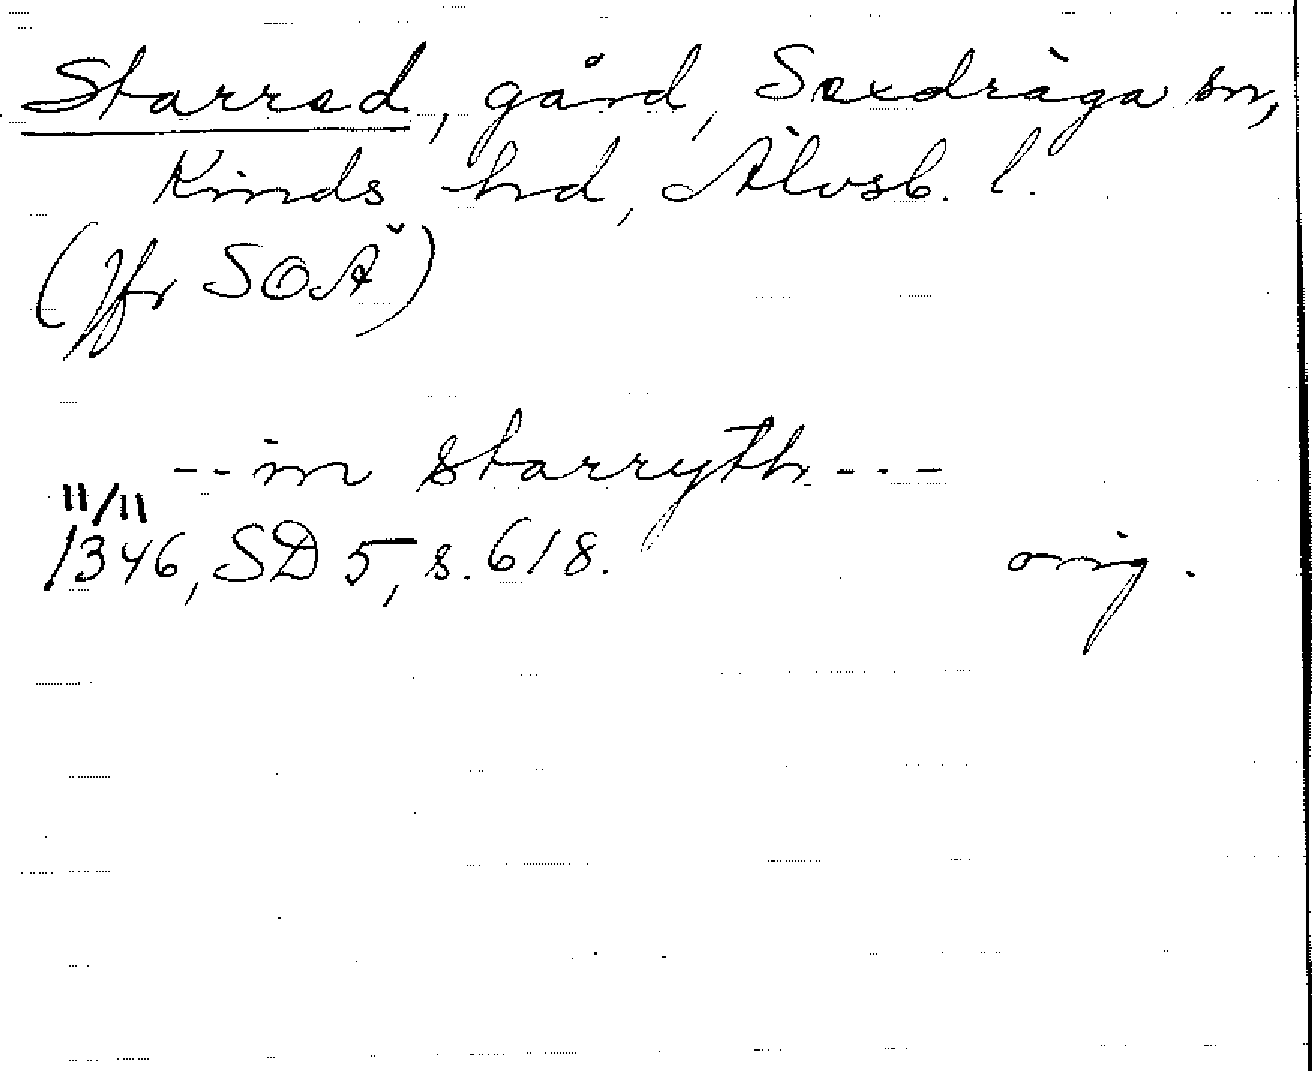 Starred, gård, Sexdrega sn,
Kinds hd, Älvsb. l.
(Jfr SOÄ)
-- in starryth ---
11/11
1346, SD 5, s. 618. orig.